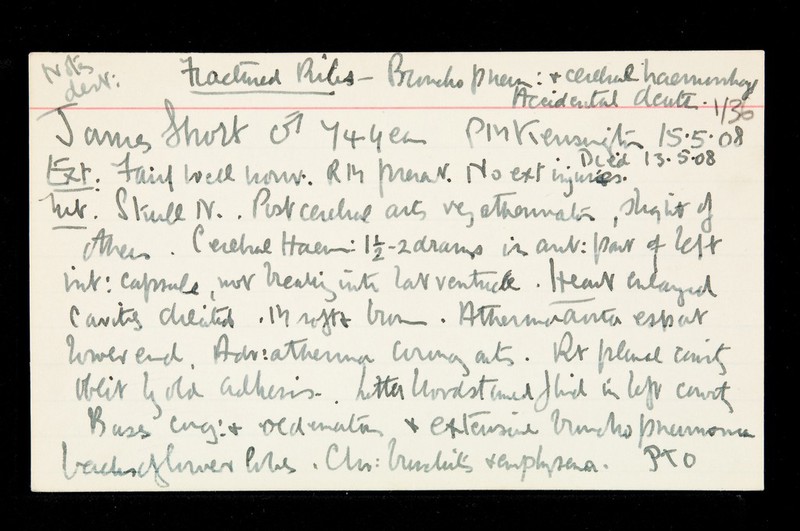 Notes
dest:
Fractured Ribs – Broncho pneum: & cerebral haemorrhage
Accidental death. 1/36
James Short ♂ 74 years PM Kensington 15.5.08
Died 13.5.08
Ext. Fairly well nour. RM present. No ext injuries.
Int. Skull N.. Post cerebral arts very atheromatous, slight of
others. Cerebral Haem: 1½-2 drams in ant: part of left
int: capsule, not breaking into lat ventricle. Heart enlarged
cavities dilated. M soft & brown. Atheroma aorta esp at
lower end, Adv: atheroma coronary arts. Rt pleural cavity
oblit by old adhesions. Little bloodstained fluid in left cavity
Bases cong: & oedematous & extensive broncho pneumonia
backs of lower lobes. Chr: bronchitis & emphysema. PTO